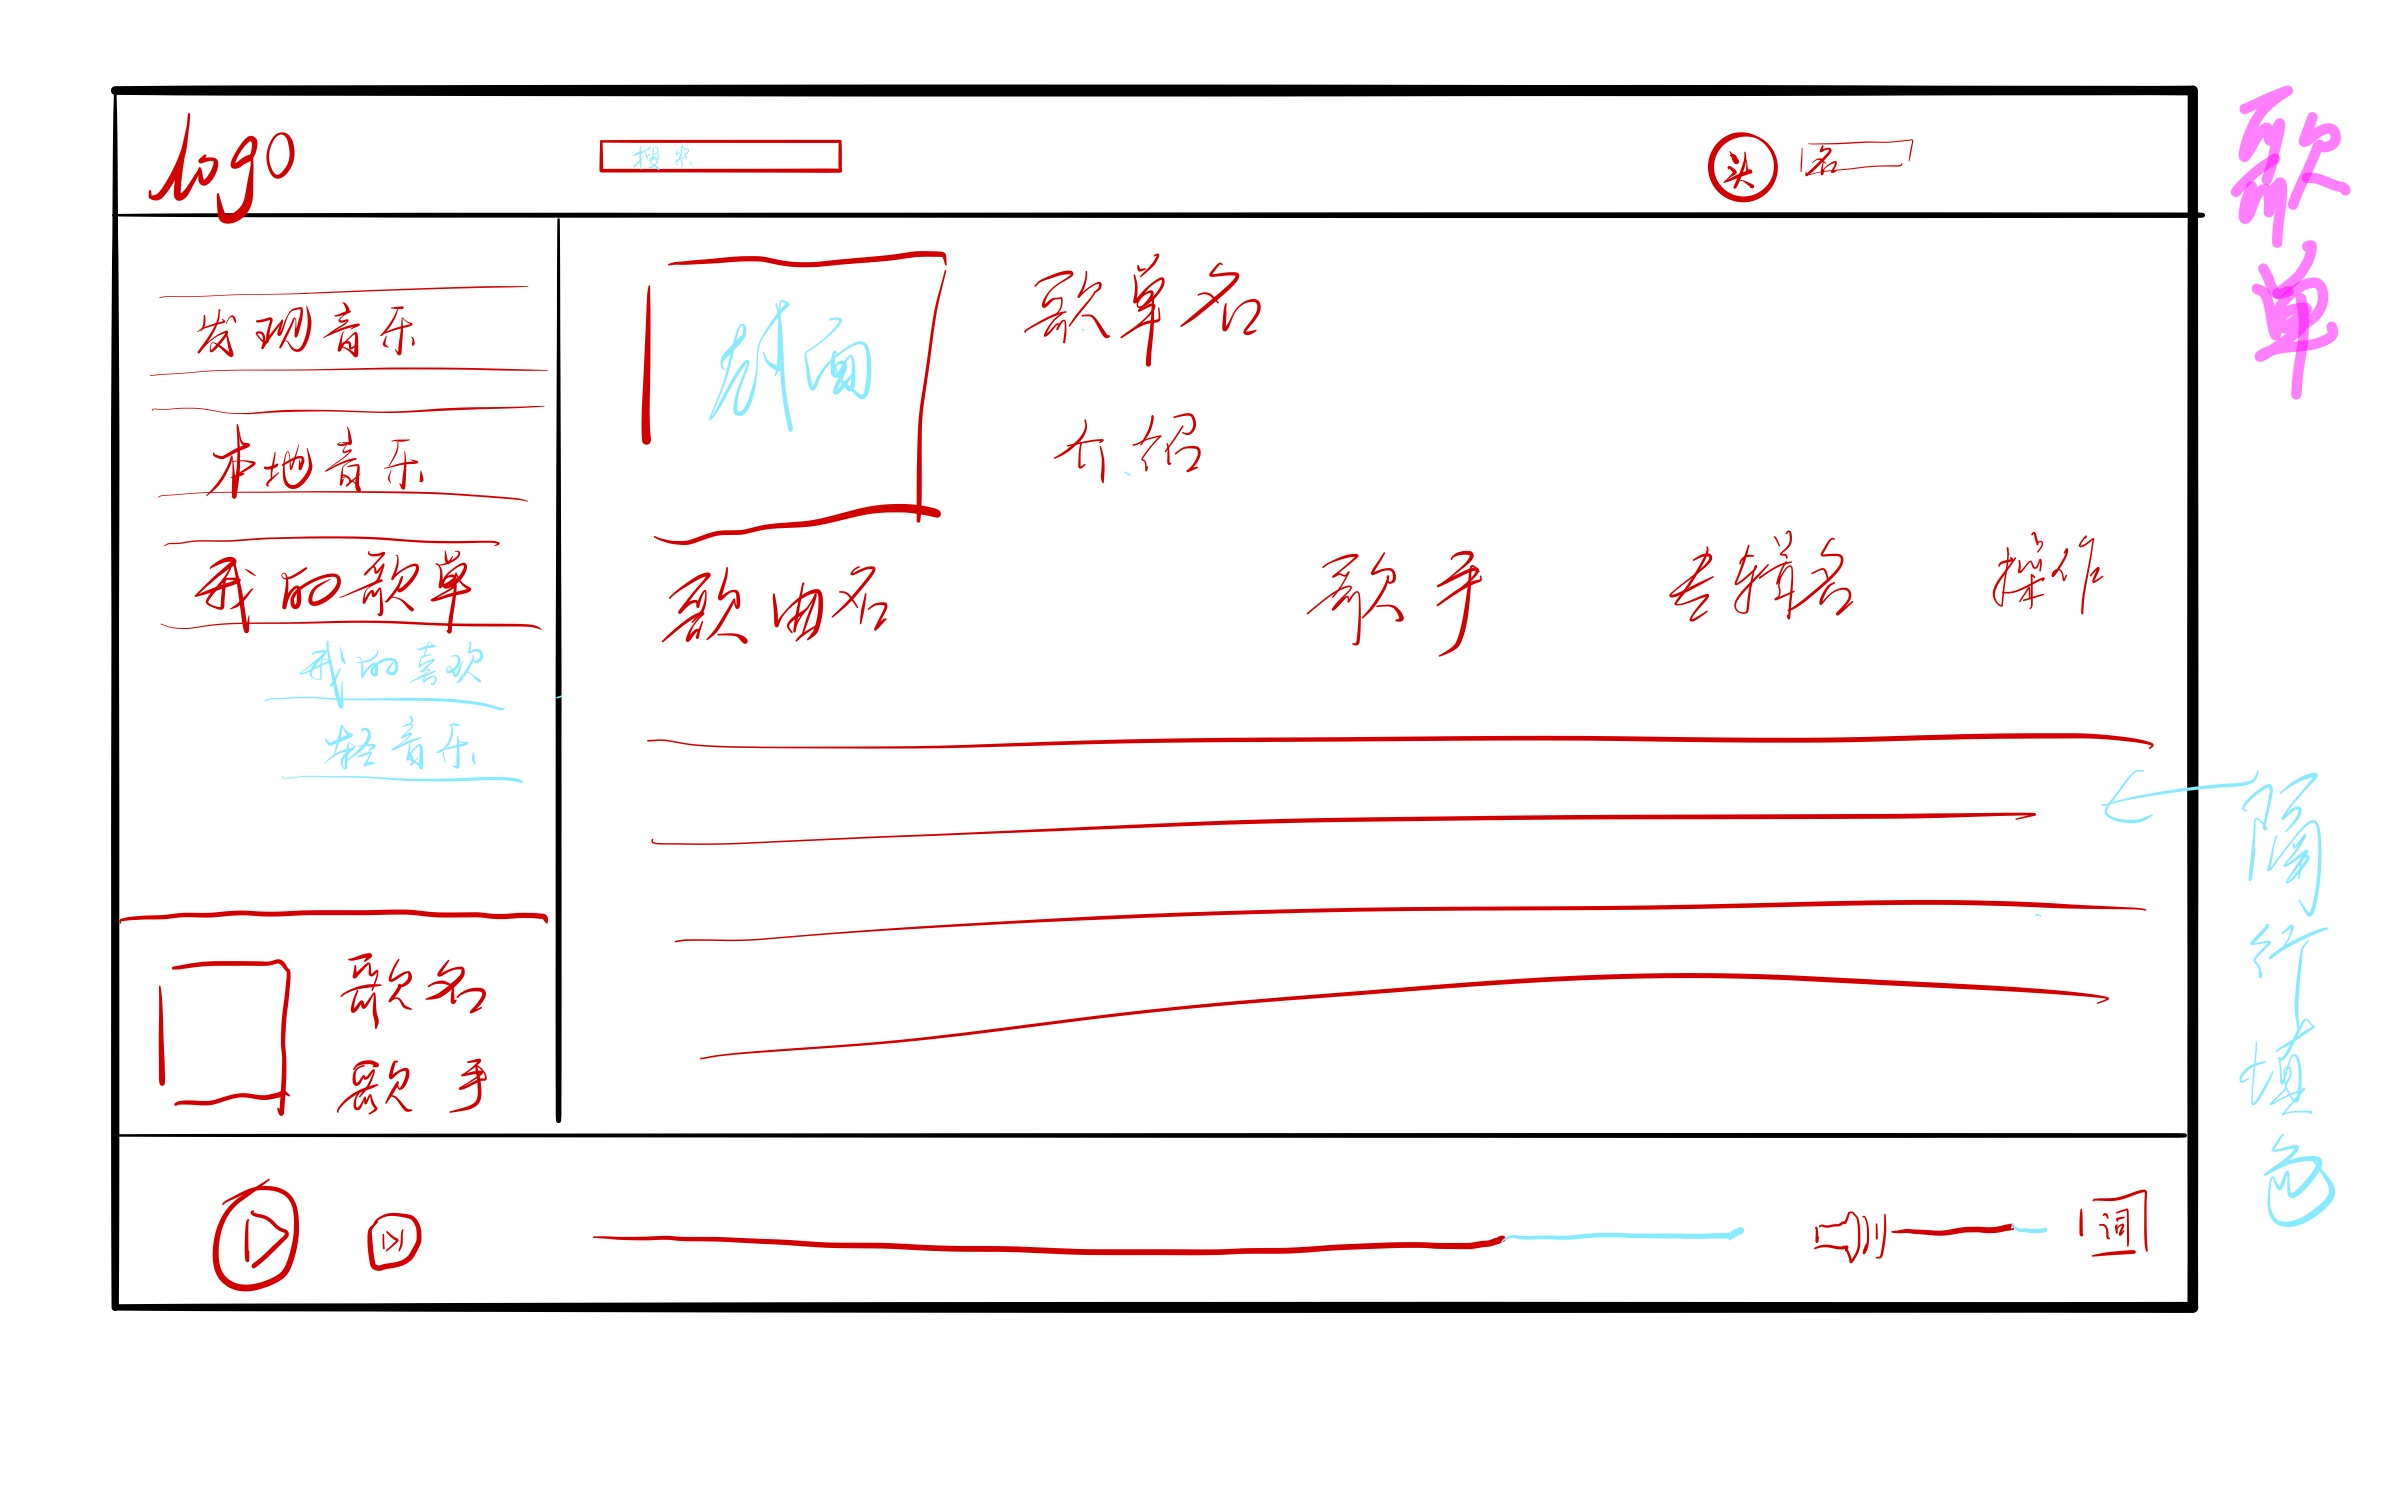 logo
搜索
头
名
歌单
发现音乐
本地音乐
我的歌单
我的喜欢
轻音乐
封面
歌单名
介绍
歌曲名 歌手 专辑名 操作
隔行填色
歌名
歌手
词